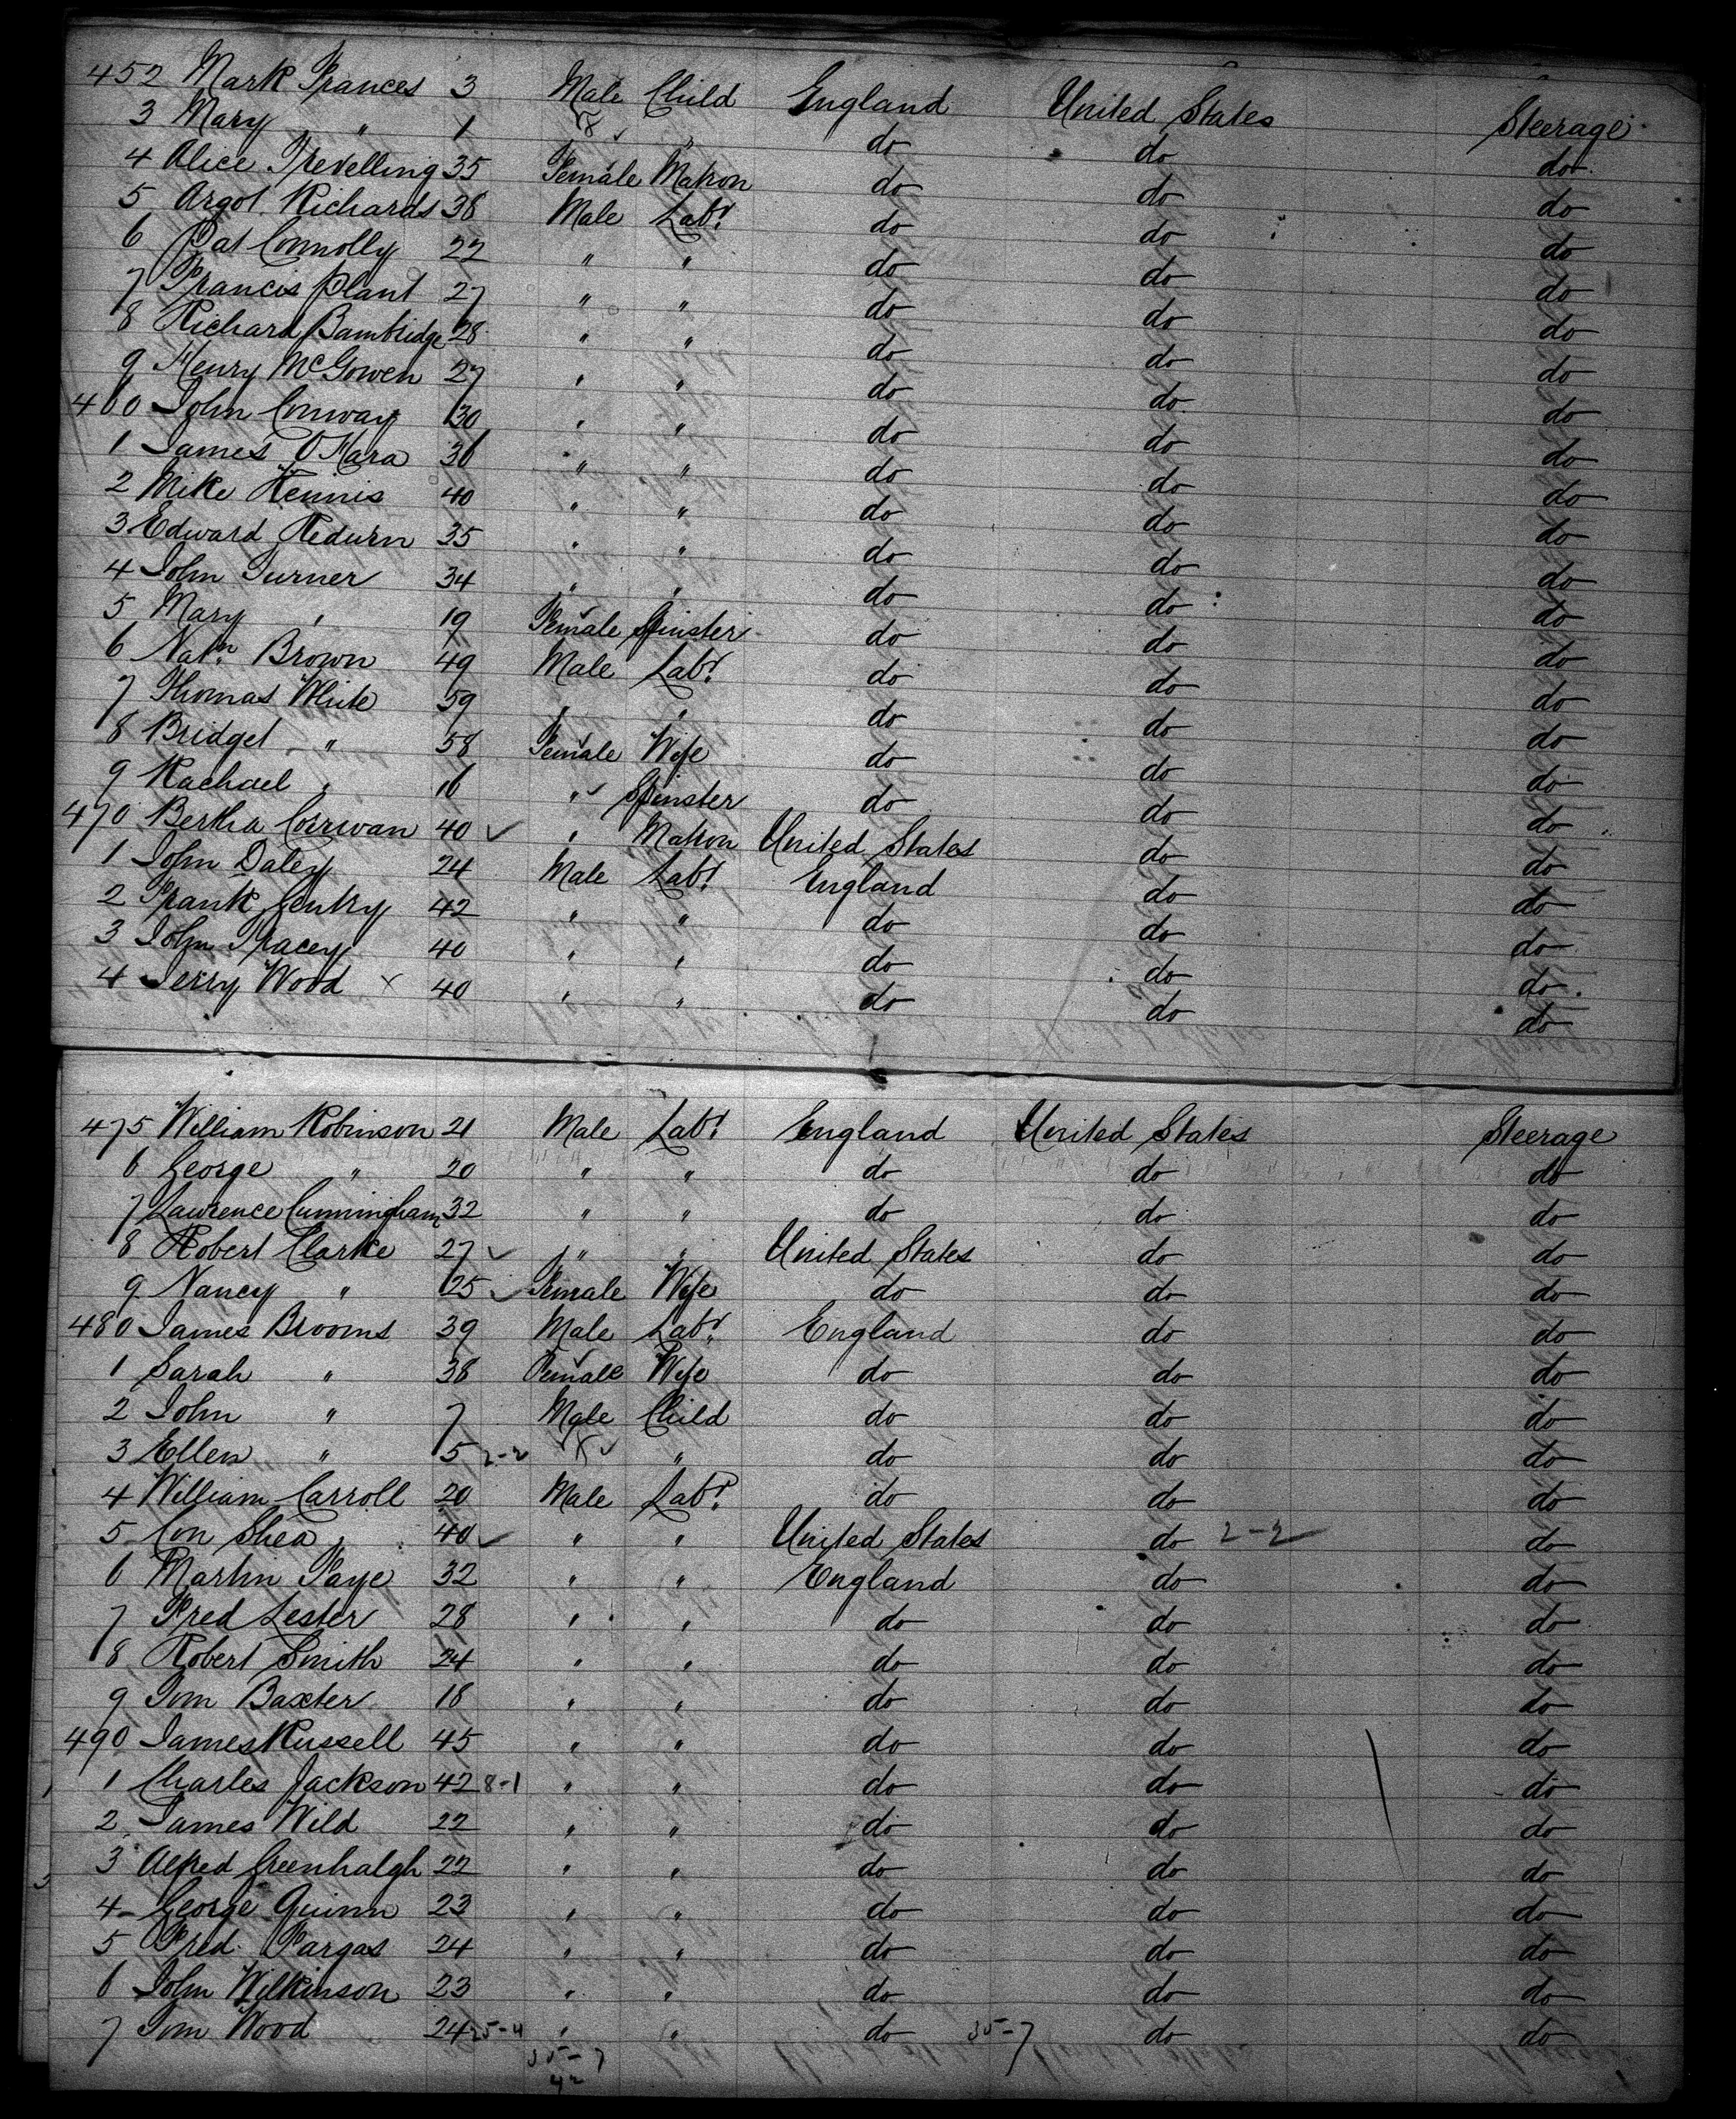 452 Mark Frances 3 Male Child England United States Steerage
3 Mary " 1 " do do do
4 Alice Trevelling 35 Female Matron do do do
5 Argol Richards 38 Male Labr. do do do
6 Pat Connolly 22 " " do do do
7 Francis Plant 27 " " do do do
8 Richard Bambridge 28 " " do do do
9 Henry McGowen 27 " " do do do
460 John Conway 30 " " do do do
1 James O'Hara 36 " " do do do
2 Mike Kennis 40 " " do do do
3 Edward Redurn 35 " " do do do
4 John Turner 34 " " do do do
5 Mary " 19 Female Spinster do do do
6 Natn. Brown 49 Male Labr. do do do
7 Thomas White 59 " " do do do
8 Bridget " 58 Female Wife do do do
9 Rachael " 16 " Spinster do do do
470 Bertha Corrwan 40 " Matron United States do do
1 John Daley 24 Male Labr. England do do
2 Frank Gentry 42 " " do do do
3 John Tracey 40 " " do do do
4 Jerry Wood x 40 " " do do do
475 William Robinson 21 Male Labr. England United States Steerage
6 George " 20 " " do do do
7 Lawrence Cunningham 32 " " do do do
8 Robert Clarke 27 " " United States do do
9 Nancy " 25 Female Wife do do do
480 James Brooms 39 Male Labr. England do do
1 Sarah " 38 Female Wife do do do
2 John " 7 Male Child do do do
3 Ellen " 5 2-2 " do do do
4 William Carroll 20 Male Labr. do do do
5 Con Shea 40 " " United States do 2-2 do
6 Martin Faye 32 " " England do do
7 Fred Lester 28 " " do do do
8 Robert Smith 24 " " do do do
9 Tom Baxter 18 " " do do do
490 James Russell 45 " " do do do
1 Charles Jackson 42 8-1 " " do do do
2 James Wild 22 " " do do do
3 Alfred Greenhalgh 22 " " do do do
4 George Quinn 23 " " do do do
5 Fred. Fargas 24 " " do do do
6 John Wilkinson 23 " " do do do
7 Tom Wood 24 25-4 " " do 35-7 do do
35-7
42